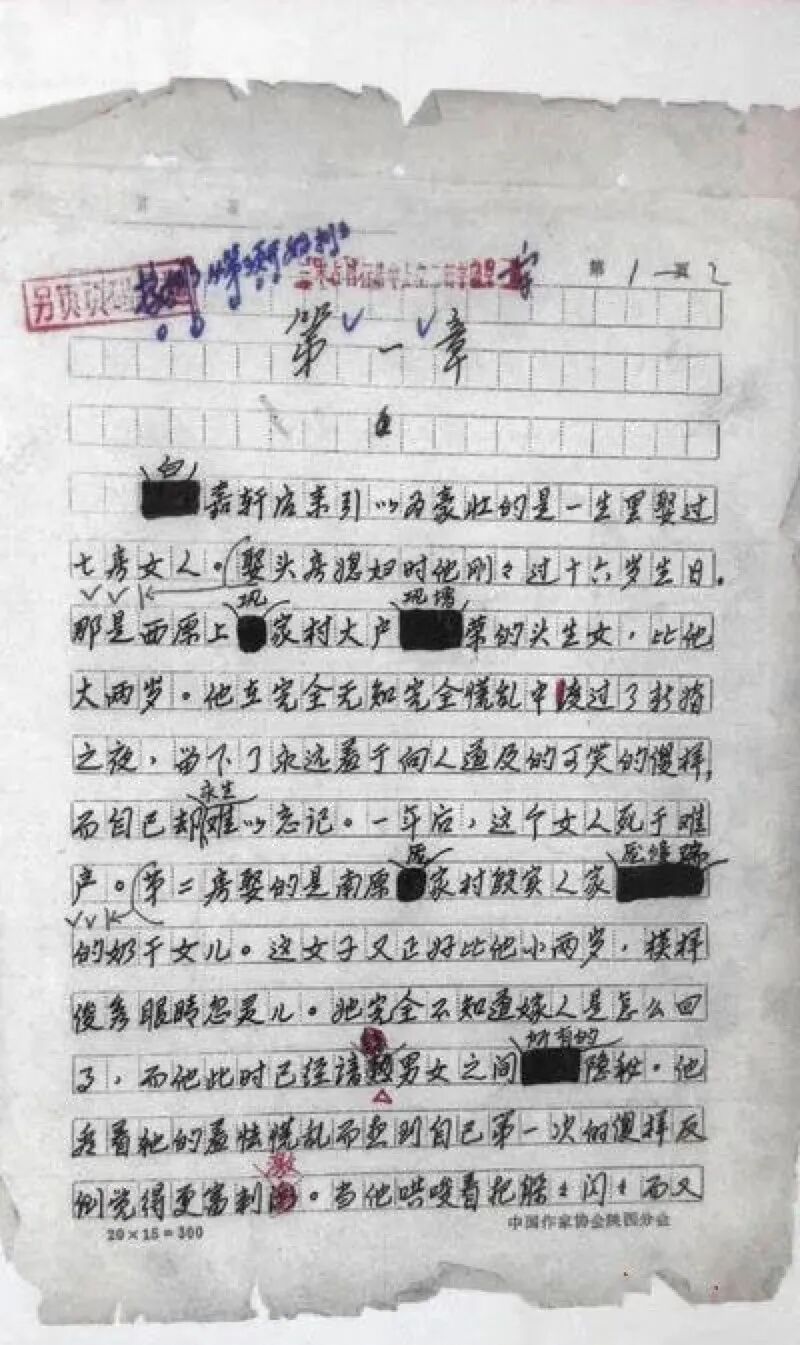 第1—2页
第一章
1
白嘉轩后来引以为豪壮的是一生里娶过
七房女人。娶头房媳妇时他刚刚过十六岁生日。
那是西原上巩家村大户巩增荣的头生女，比他
大两岁。他在完全无知完全慌乱中度过了新婚
之夜，留下了永远羞于向人道及的可笑的傻样，
而自己却永生难以忘记。一年后，这个女人死于难
产。第二房娶的是南原庞家村殷实人家庞修瑞
的奶干女儿。这女子又正好比他小两岁，模样
俊秀眼睛忽灵儿。她完全不知道嫁人是怎么回
事，而他此时已经谙熟男女之间所有的隐秘。他
看着她的羞怯慌乱而想到自己第一次的傻样反
倒觉得更富刺激。当他哄唆着把躲躲闪闪而又
20×15=300
中国作家协会陕西分会